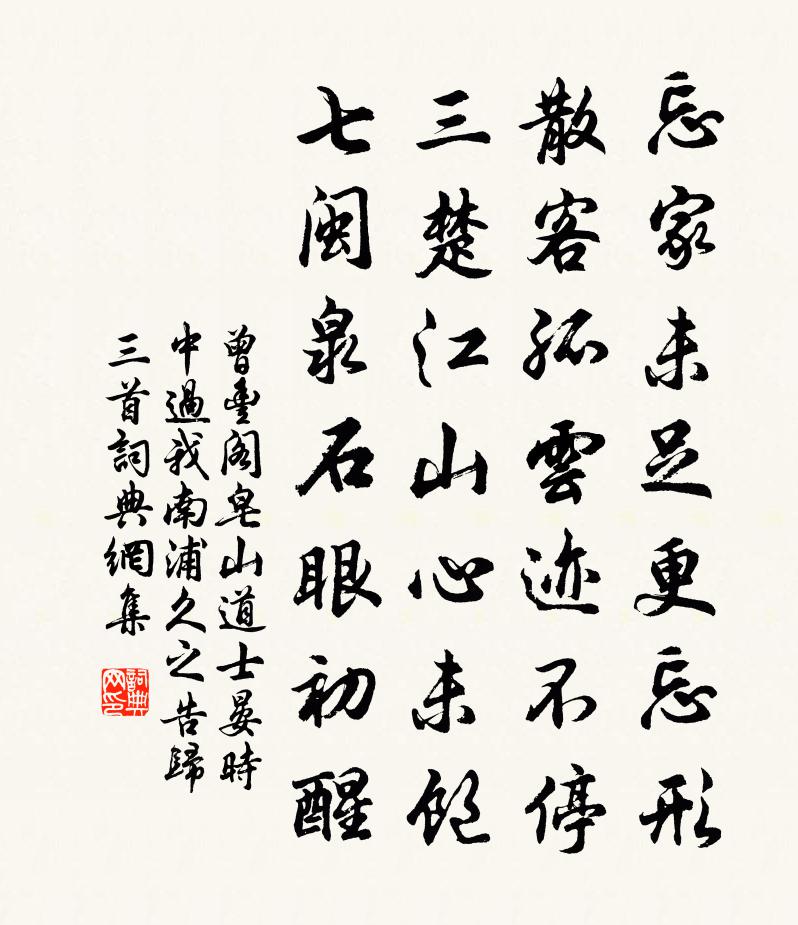 忘家未足更忘形
散客孤雲迹不停
三楚江山心未飽
七閩泉石眼初醒
曾豐閣皂山道士晏時
中過我南浦久之告歸
三首詞典網集
詞典
网印